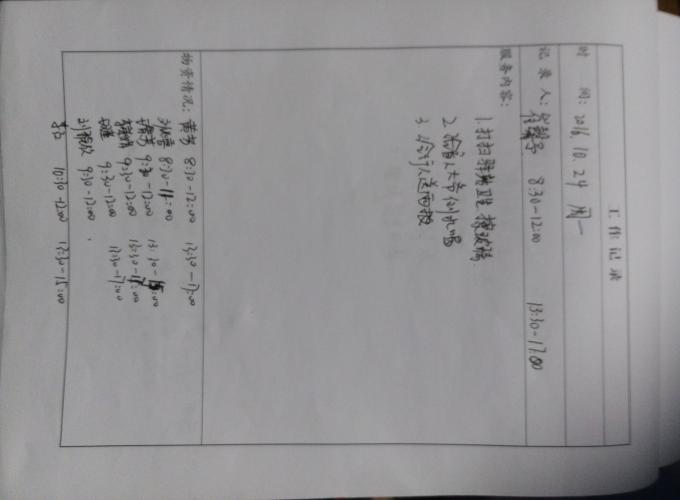 工作记录
时 间：2016.10.24 周一
记录人： 8:30-12:00 13:30-17:00
服务内容：
1.打扫驿站卫生 擦玻璃
2.给盲人大爷倒水喝
3.给行人送面报
物资情况： 8:30-12:00 13:30-17:00
8:30-11:00
9:30-12:00 13:30-15:00
9:30-12:00 13:30-17:00
9:30-12:00 13:30-17:00
9:30-12:00
10:30-12:00 13:30-15:00